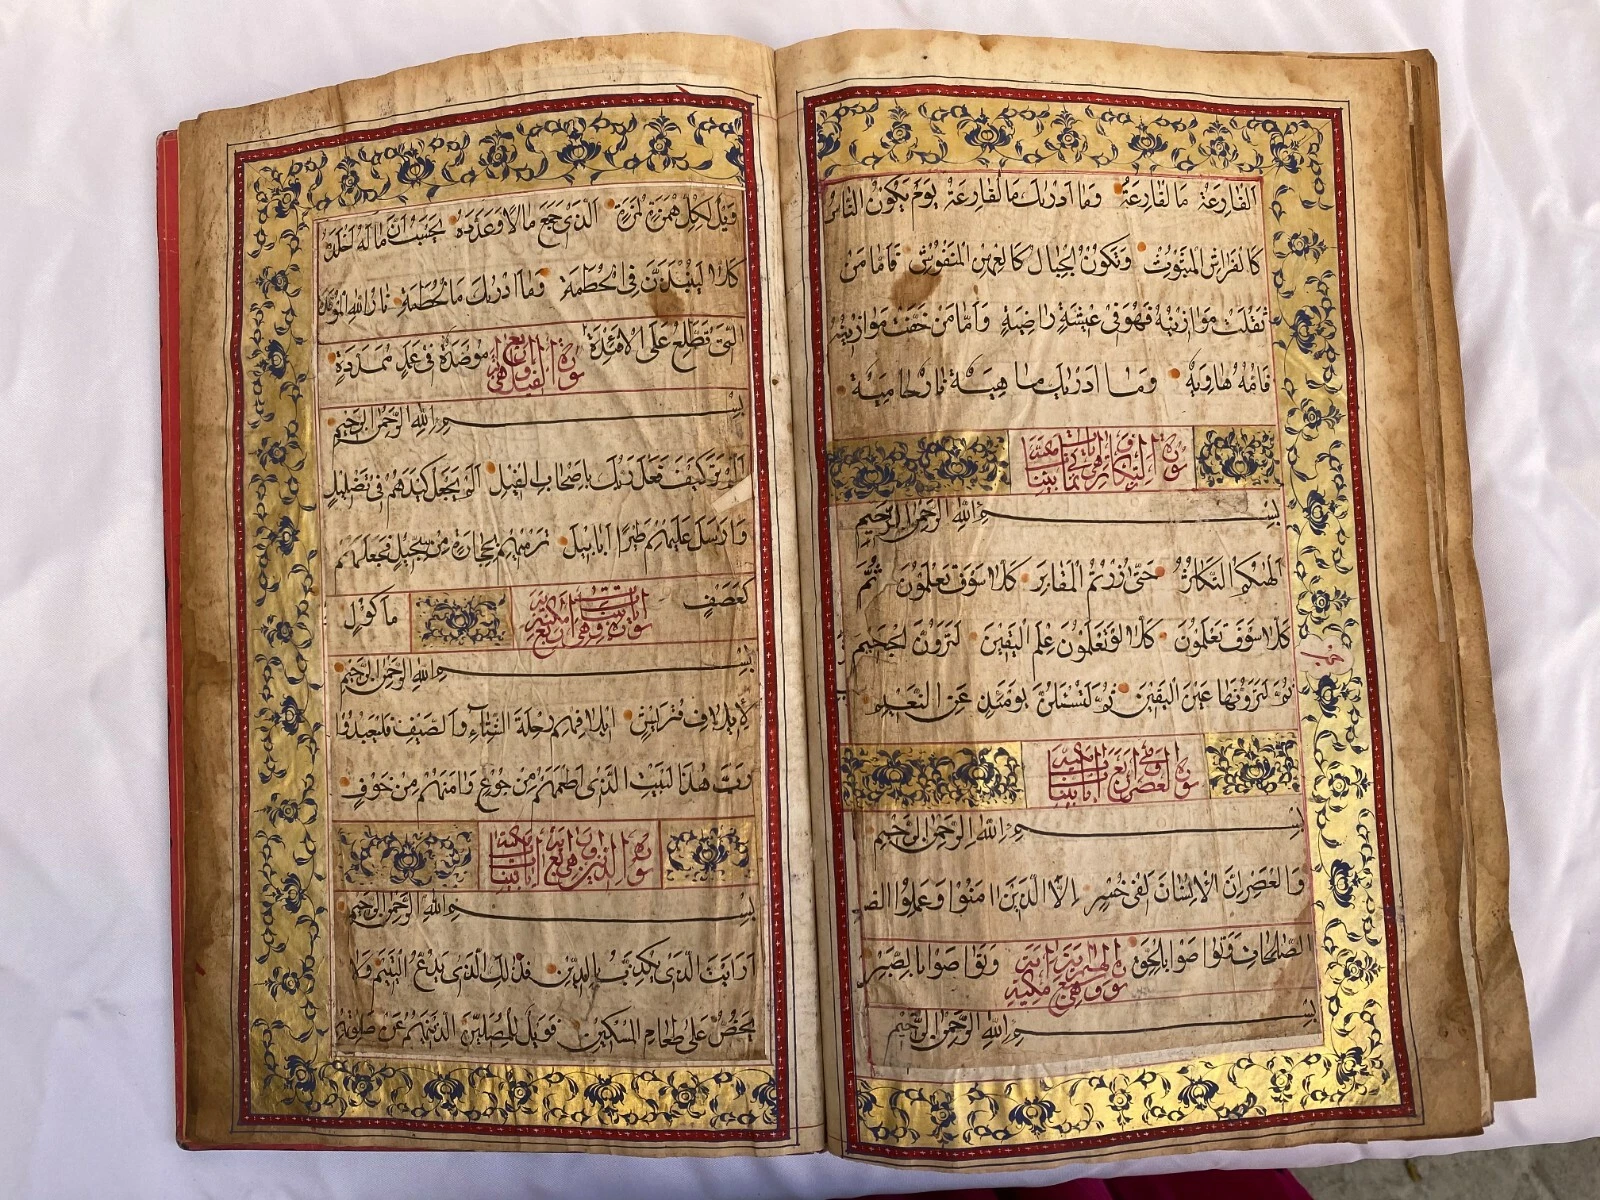 القارعة ما القارعة وما ادريك ما القارعة يوم يكون الناس
كالفراش المبثوث وتكون الجبال كالعهن المنفوش فاما من
ثقلت موازينه فهو فى عيشة راضية واما من خفت موازينه
فامه هاوية وما ادريك ما هية نار حامية
سورة التكاثر
بسم الله الرحمن الرحيم
الهيكم التكاثر حتى زرتم المقابر كلا سوف تعلمون ثم
كلا سوف تعلمون كلا لو تعلمون علم اليقين لترون الجحيم
ثم لترونها عين اليقين ثم لتسئلن يومئذ عن النعيم
سورة العصر
بسم الله الرحمن الرحيم
والعصر ان الانسان لفى خسر الا الذين امنوا وعملوا الصا
الصالحات وتواصوا بالحق وتواصوا بالصبر
بسم الله الرحمن الرحيم
ويل لكل همزة لمزة الذى جمع مالا وعدده يحسب ان ماله اخلده
كلا لينبذن فى الحطمة وما ادريك ما الحطمة نار الله الموقدة
التى تطلع على الافئدة سورة الفيل موصدة فى عمد ممددة
بسم الله الرحمن الرحيم
الم تر كيف فعل ربك باصحاب الفيل الم يجعل كيدهم فى تضليل
وارسل عليهم طيرا ابابيل ترميهم بحجارة من سجيل فجعلهم
كعصف ماكول
بسم الله الرحمن الرحيم
لايلاف قريش ايلافهم رحلة الشتاء والصيف فليعبدوا
رب هذا البيت الذى اطعمهم من جوع وامنهم من خوف
سورة الدين
بسم الله الرحمن الرحيم
ارايت الذى يكذب بالدين فذلك الذى يدع اليتيم ولا
يحض على طعام المسكين فويل للمصلين الذينهم عن صلوته